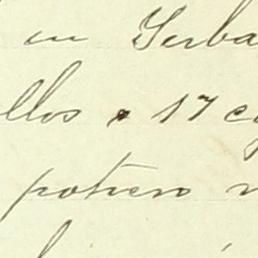 en Yerba
llos a 17 c
potrero n